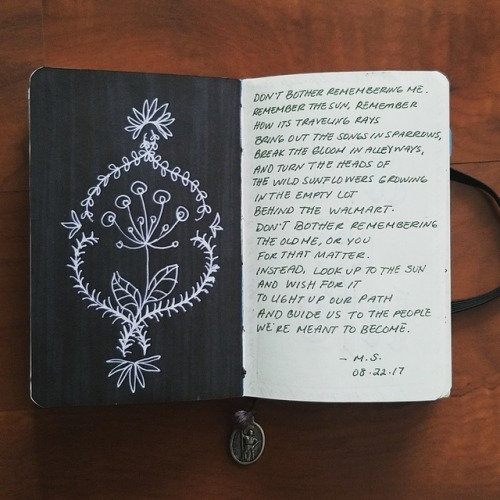 DON'T BOTHER REMEMBERING ME.
REMEMBER THE SUN, REMEMBER
HOW ITS TRAVELING RAYS
BRING OUT THE SONGS IN SPARROWS,
BREAK THE GLOOM IN ALLEYWAYS,
AND TURN THE HEADS OF
THE WILD SUNFLOWERS GROWING
IN THE EMPTY LOT
BEHIND THE WALMART.
DON'T BOTHER REMEMBERING
THE OLD ME, OR YOU
FOR THAT MATTER.
INSTEAD, LOOK UP TO THE SUN
AND WISH FOR IT
TO LIGHT UP OUR PATH
AND GUIDE US TO THE PEOPLE
WE'RE MEANT TO BECOME.
- M.S.
08.22.17